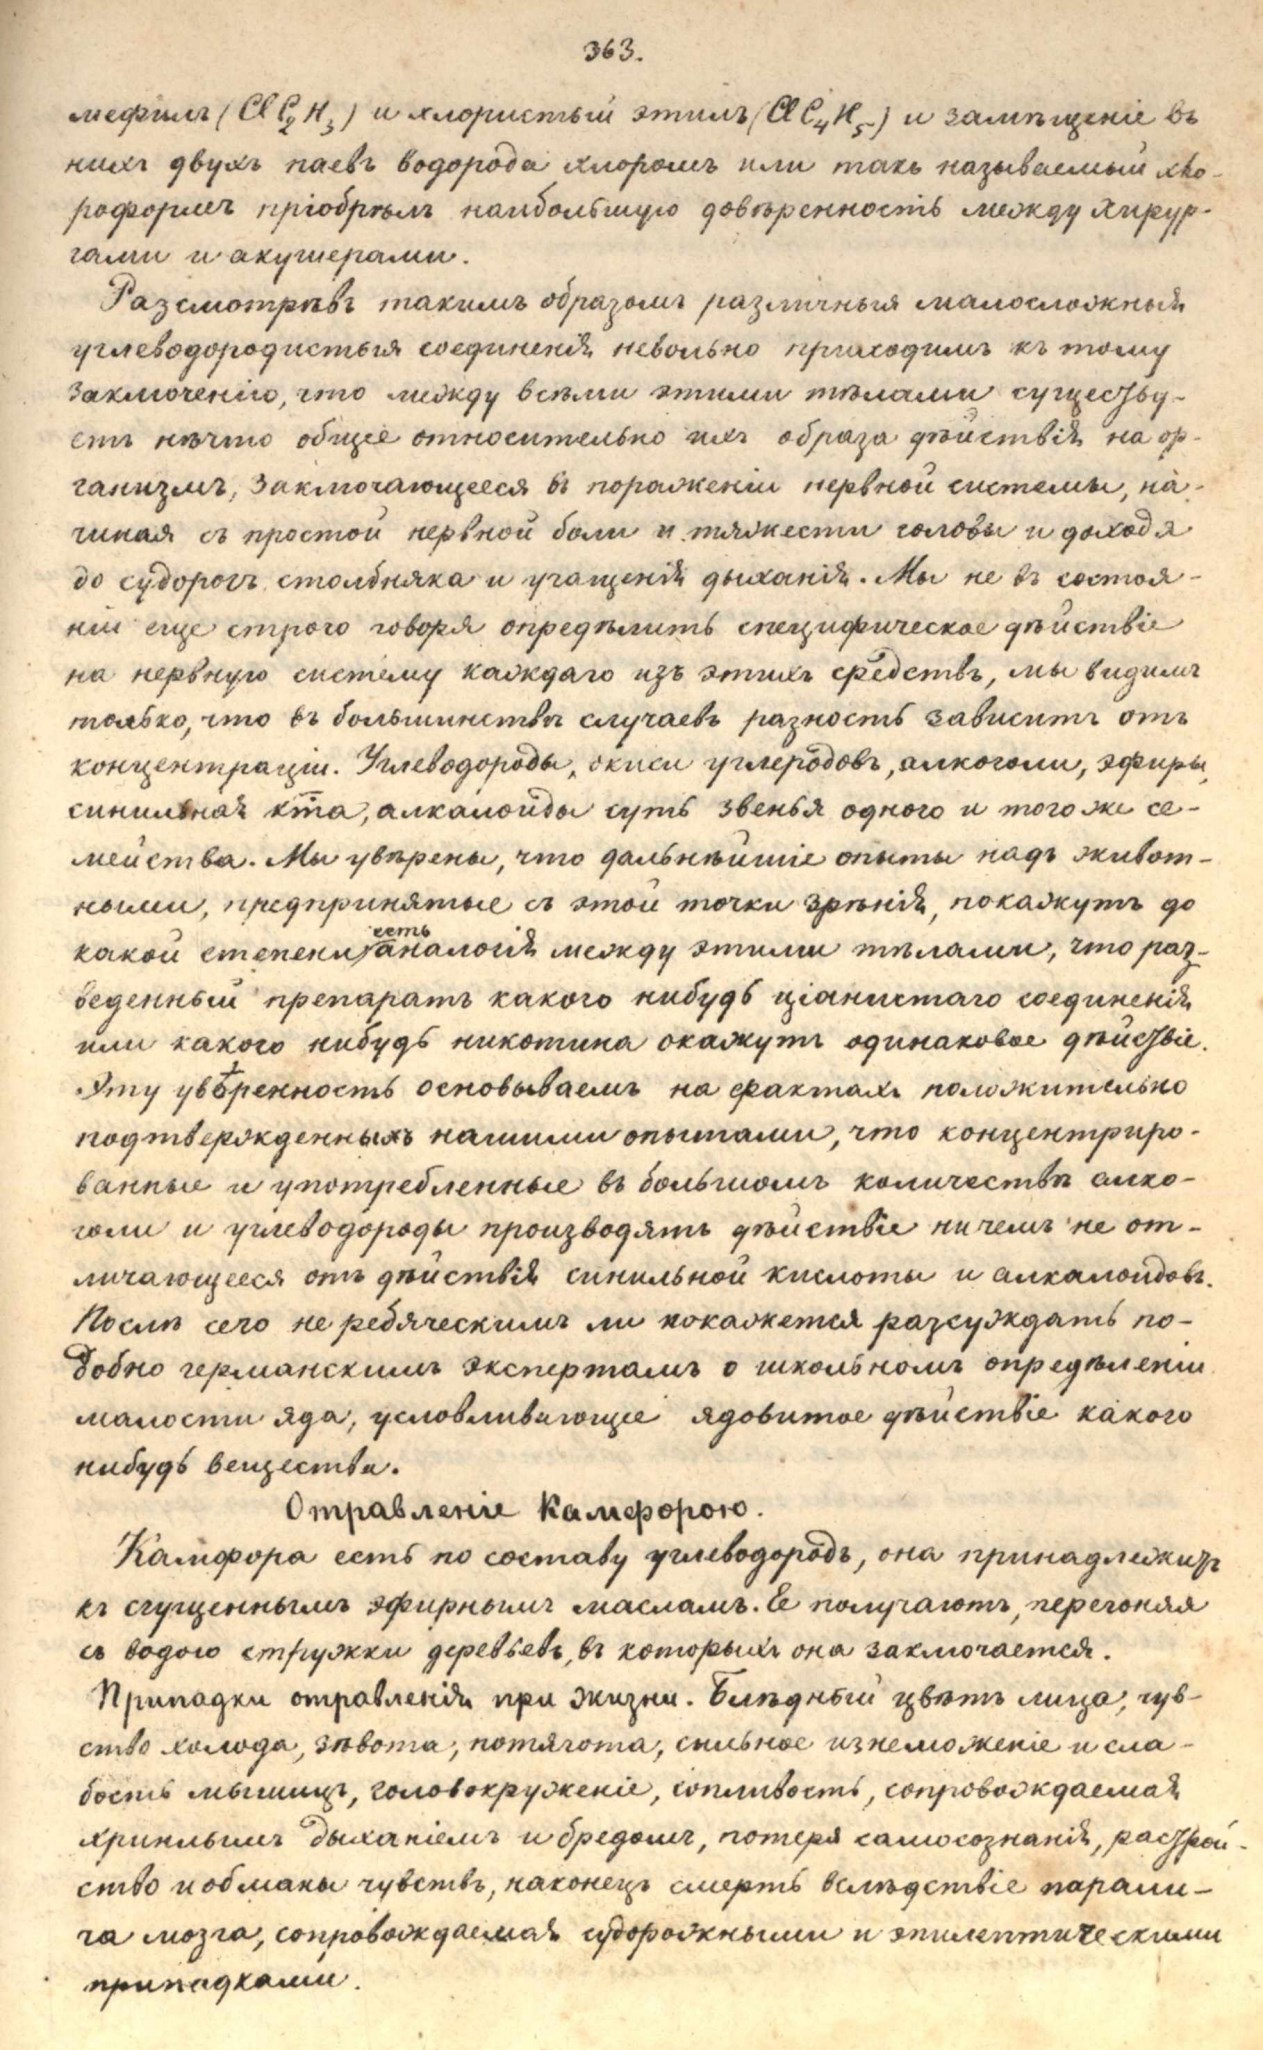 363.
мефилъ (Cl C₂ H₃) и хлористый этилъ (Cl C₄ H₅) и замѣщеніе въ
нихъ двухъ паевъ водорода хлоромъ или такъ называемый хло-
роформъ пріобрѣлъ наибольшую довѣренность между хирур-
гами и акушерами.
Разсмотрѣвъ такимъ образомъ различныя малосложныя
углеводородистыя соединенія невольно приходимъ къ тому
заключенію, что между всѣми этими тѣлами существу-
етъ нѣчто общее относительно ихъ образа дѣйствія на ор-
ганизмъ, заключающееся въ пораженіи нервной системы, на-
чиная съ простой нервной боли и тяжести головы и доходя
до судорогъ столбняка и учащенія дыханія. Мы не въ состоя-
ніи еще строго говоря опредѣлить специфическое дѣйствіе
на нервную систему каждаго изъ этихъ средствъ, мы видимъ
только, что въ большинствѣ случаевъ разность зависитъ отъ
концентраціи. Углеводороды, окиси углеродовъ, алкоголи, эфиры,
синильная кта, алкалоиды суть звенья одного и того же се-
мейства. Мы увѣрены, что дальнѣйшіе опыты надъ живот-
ными, предпринятые съ этой точки зрѣнія, покажутъ до
какой степени есть аналогія между этими тѣлами, что раз-
веденный препаратъ какого нибудь ціанистаго соединенія
или какого нибудь никотина окажутъ одинаковое дѣйствіе.
Эту увѣренность основываемъ на фактахъ положительно
подтвержденныхъ нашими опытами, что концентриро-
ванные и употребленные въ большомъ количествѣ алко-
голи и углеводороды производятъ дѣйствіе ничемъ не от-
личающееся отъ дѣйствія синильной кислоты и алкалоидовъ.
Послѣ сего не ребяческимъ ли покажется разсуждать по-
добно германскимъ экспертамъ о школьномъ опредѣленіи
малости яда, условливающее ядовитое дѣйствіе какого
нибудь вещества.
Отравленіе Камфорою.
Камфора есть по составу углеводородъ, она принадлежитъ
къ сгущеннымъ эфирнымъ масламъ. Её получаютъ, перегоняя
съ водою стружки деревьевъ, въ которыхъ она заключается.
Припадки отравленія при жизни. Блѣдный цвѣтъ лица, чув-
ство холода, зѣвота, потягота, сильное изнеможеніе и сла-
бость мышицъ, головокруженіе, сопливость, сопровождаемая
хриплымъ дыханіемъ и бредомъ, потеря самосознанія, растрой-
ство и обманы чувствъ, наконецъ смерть вслѣдствіе парали-
ча мозга, сопровождаемая судорожными и эпилептическими
припадками.